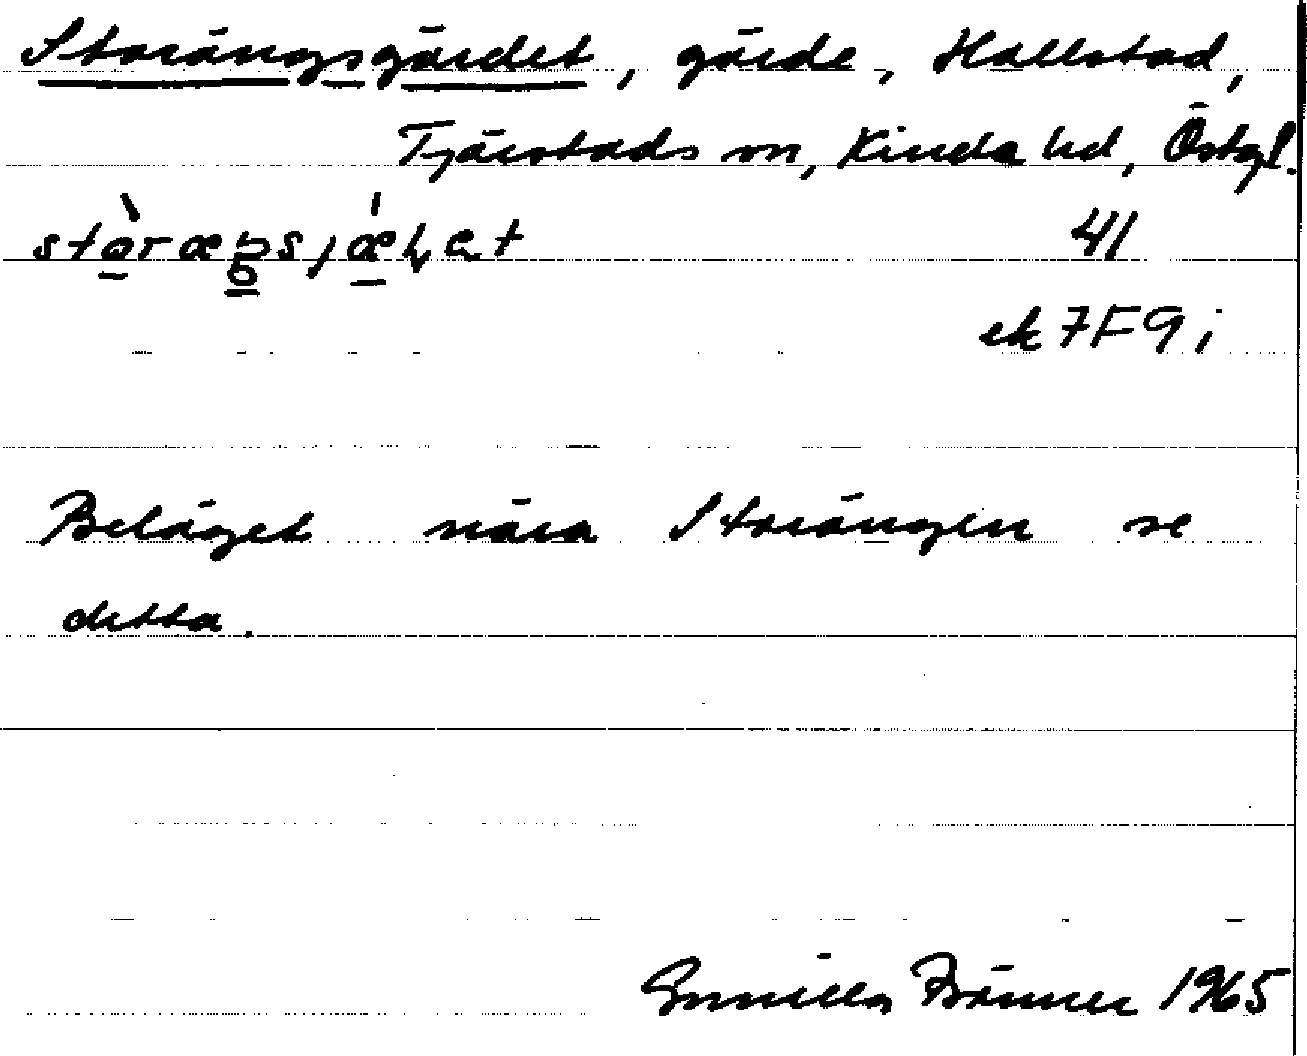 Storängsgärdet, gärde, Hallstad,
Tjärstads sn, Kinda hd, Östgl.
41
ek 7F9i
Beläget nära Storängen se
detta.
Gunilla Bränner 1965